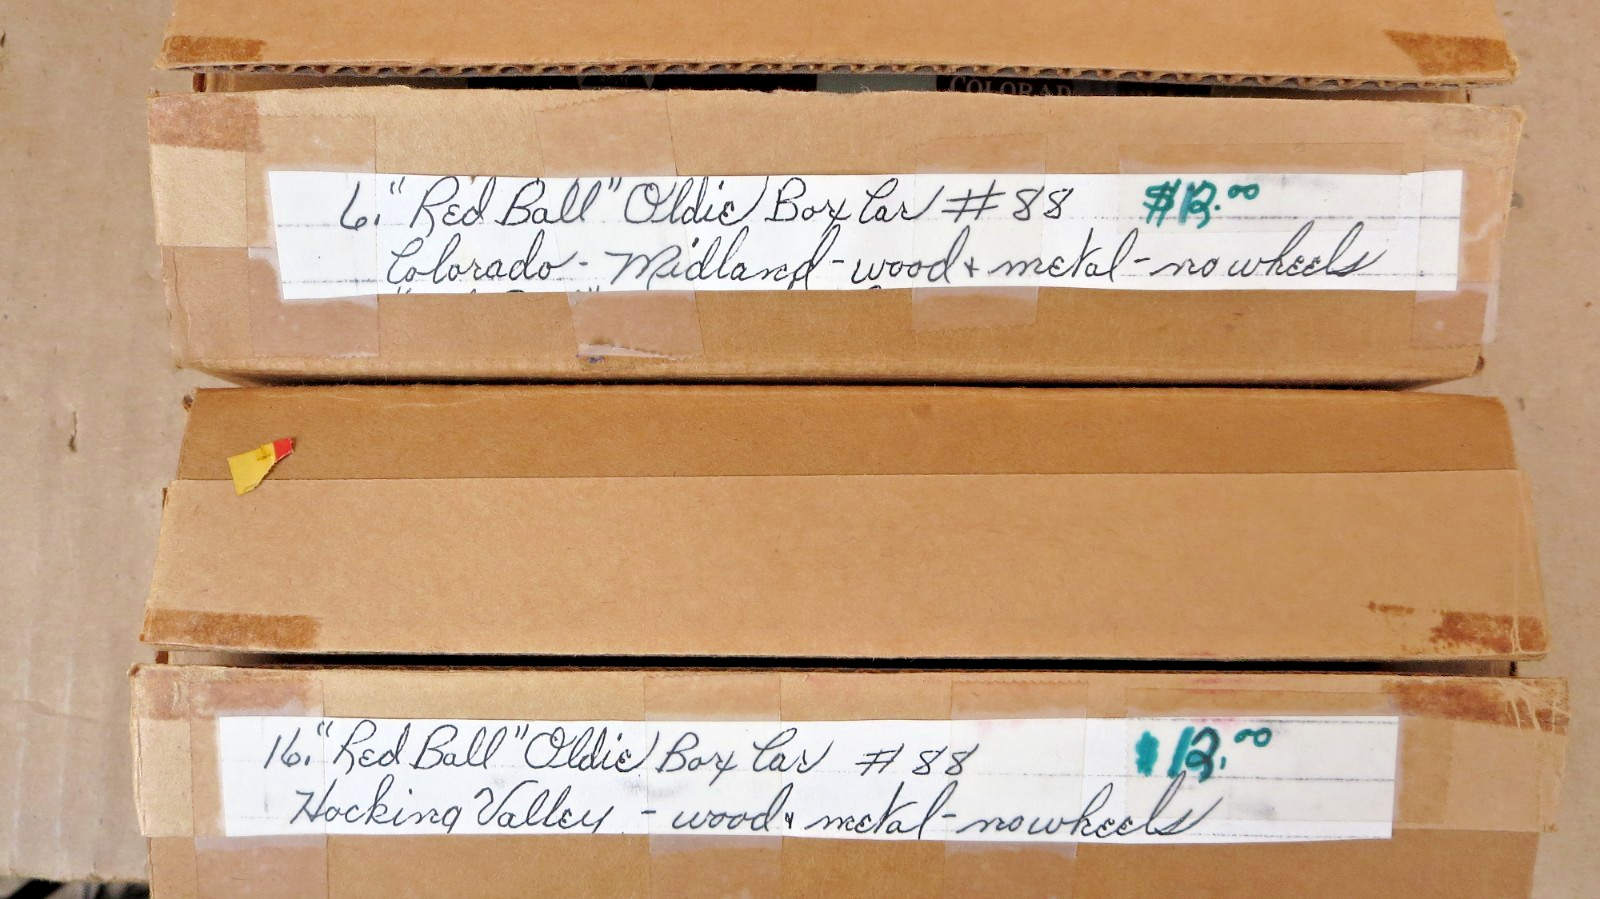 COLORAD
6. "Red Ball" Oldie Box Car # 88 $12.00
Colorado - Midland - wood & metal - no wheels
16. "Red Ball" Oldie Box Car # 88 $12.00
Hocking Valley - wood & metal - no wheels